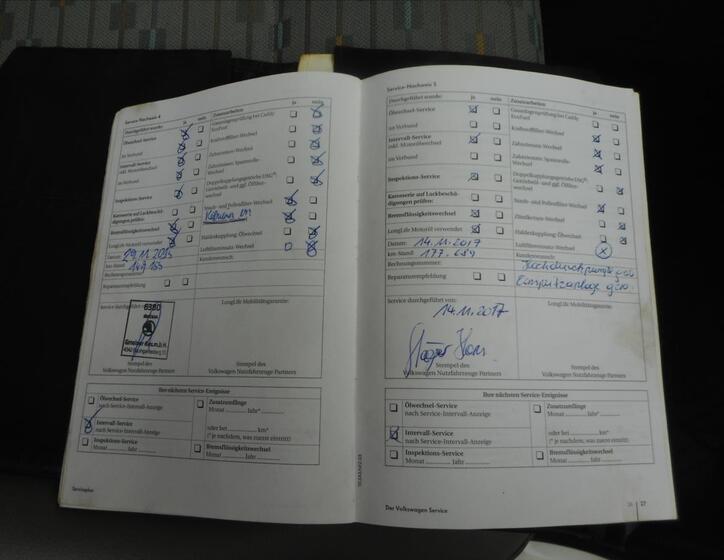 Service-Nachweis 4
Durchgeführt wurde: ja nein
Ölwechsel-Service
im Verbund
Intervall-Service
inkl. Motorölwechsel
im Verbund
Inspektions-Service
Karosserie auf Lackbeschä-
digungen prüfen:
Bremsflüssigkeitswechsel
LongLife Motoröl verwendet
Datum: 29.11.2015
km-Stand:
Rechnungsnummer:
Reparaturempfehlung
Zusatzarbeiten: ja nein
Gasanlagenprüfung bei Caddy
EcoFuel
Kraftstofffilter-Wechsel
Zahnriemen-Wechsel
Zahnriemen; Spannrolle-
Wechsel
Doppelkupplungsgetriebe DSG®:
Getriebeöl- und ggf. Ölfilter-
wechsel
Staub- und Pollenfilter-Wechsel
Haldexkupplung: Ölwechsel
Luftfiltereinsatz-Wechsel
Kundenwunsch:
Service durchgeführt von:
6380
LongLife Mobilitätsgarantie:
Stempel des
Volkswagen Nutzfahrzeuge Partners
Stempel des
Volkswagen Nutzfahrzeuge Partners
Ihre nächsten Service-Ereignisse
Ölwechsel-Service
nach Service-Intervall-Anzeige
Intervall-Service
nach Service-Intervall-Anzeige
Inspektions-Service
Monat Jahr
Zusatzumfänge
Monat Jahr*
oder bei km*
(* je nachdem, was zuerst eintritt)
Bremsflüssigkeitswechsel
Monat Jahr
Serviceplan
Service-Nachweis 5
Durchgeführt wurde: ja nein
Ölwechsel-Service
im Verbund
Intervall-Service
inkl. Motorölwechsel
im Verbund
Inspektions-Service
Karosserie auf Lackbeschä-
digungen prüfen:
Bremsflüssigkeitswechsel
LongLife Motoröl verwendet
Datum: 14.11.2017
km-Stand: 177.689
Rechnungsnummer:
Reparaturempfehlung
Zusatzarbeiten: ja nein
Gasanlagenprüfung bei Caddy
EcoFuel
Kraftstofffilter-Wechsel
Zahnriemen-Wechsel
Zahnriemen; Spannrolle-
Wechsel
Doppelkupplungsgetriebe DSG®:
Getriebeöl- und ggf. Ölfilter-
wechsel
Staub- und Pollenfilter-Wechsel
Zündkerzen-Wechsel
Haldexkupplung: Ölwechsel
Luftfiltereinsatz-Wechsel
Kundenwunsch:
Einspritzanlage
Service durchgeführt von:
14.11.2017
LongLife Mobilitätsgarantie:
Stempel des
Volkswagen Nutzfahrzeuge Partners
Stempel des
Volkswagen Nutzfahrzeuge Partners
Ihre nächsten Service-Ereignisse
Ölwechsel-Service
nach Service-Intervall-Anzeige
Intervall-Service
nach Service-Intervall-Anzeige
Inspektions-Service
Monat Jahr
Zusatzumfänge
Monat Jahr*
oder bei km*
(* je nachdem, was zuerst eintritt)
Bremsflüssigkeitswechsel
Monat Jahr
Der Volkswagen Service
26 27